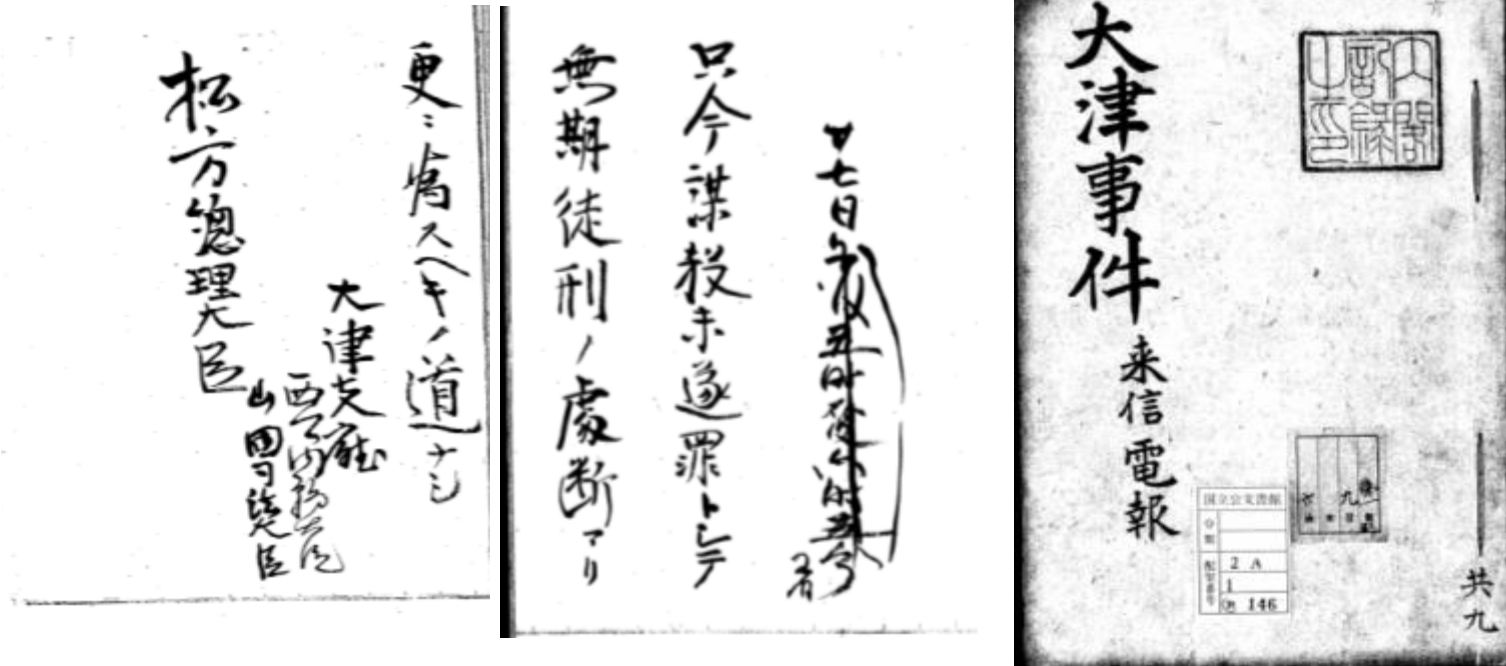 大津事件
来信電報
内閣
記録
之印
国立公文書館
分類
配架番号
2 A
1
146
共九
七日午後五時發六時五分
着
只今謀殺未遂罪トシテ
無期徒刑ノ處断アリ
更ニ為スヘキノ道ナシ
大津支廳
西郷内務大臣
山田司法大臣
松方總理大臣